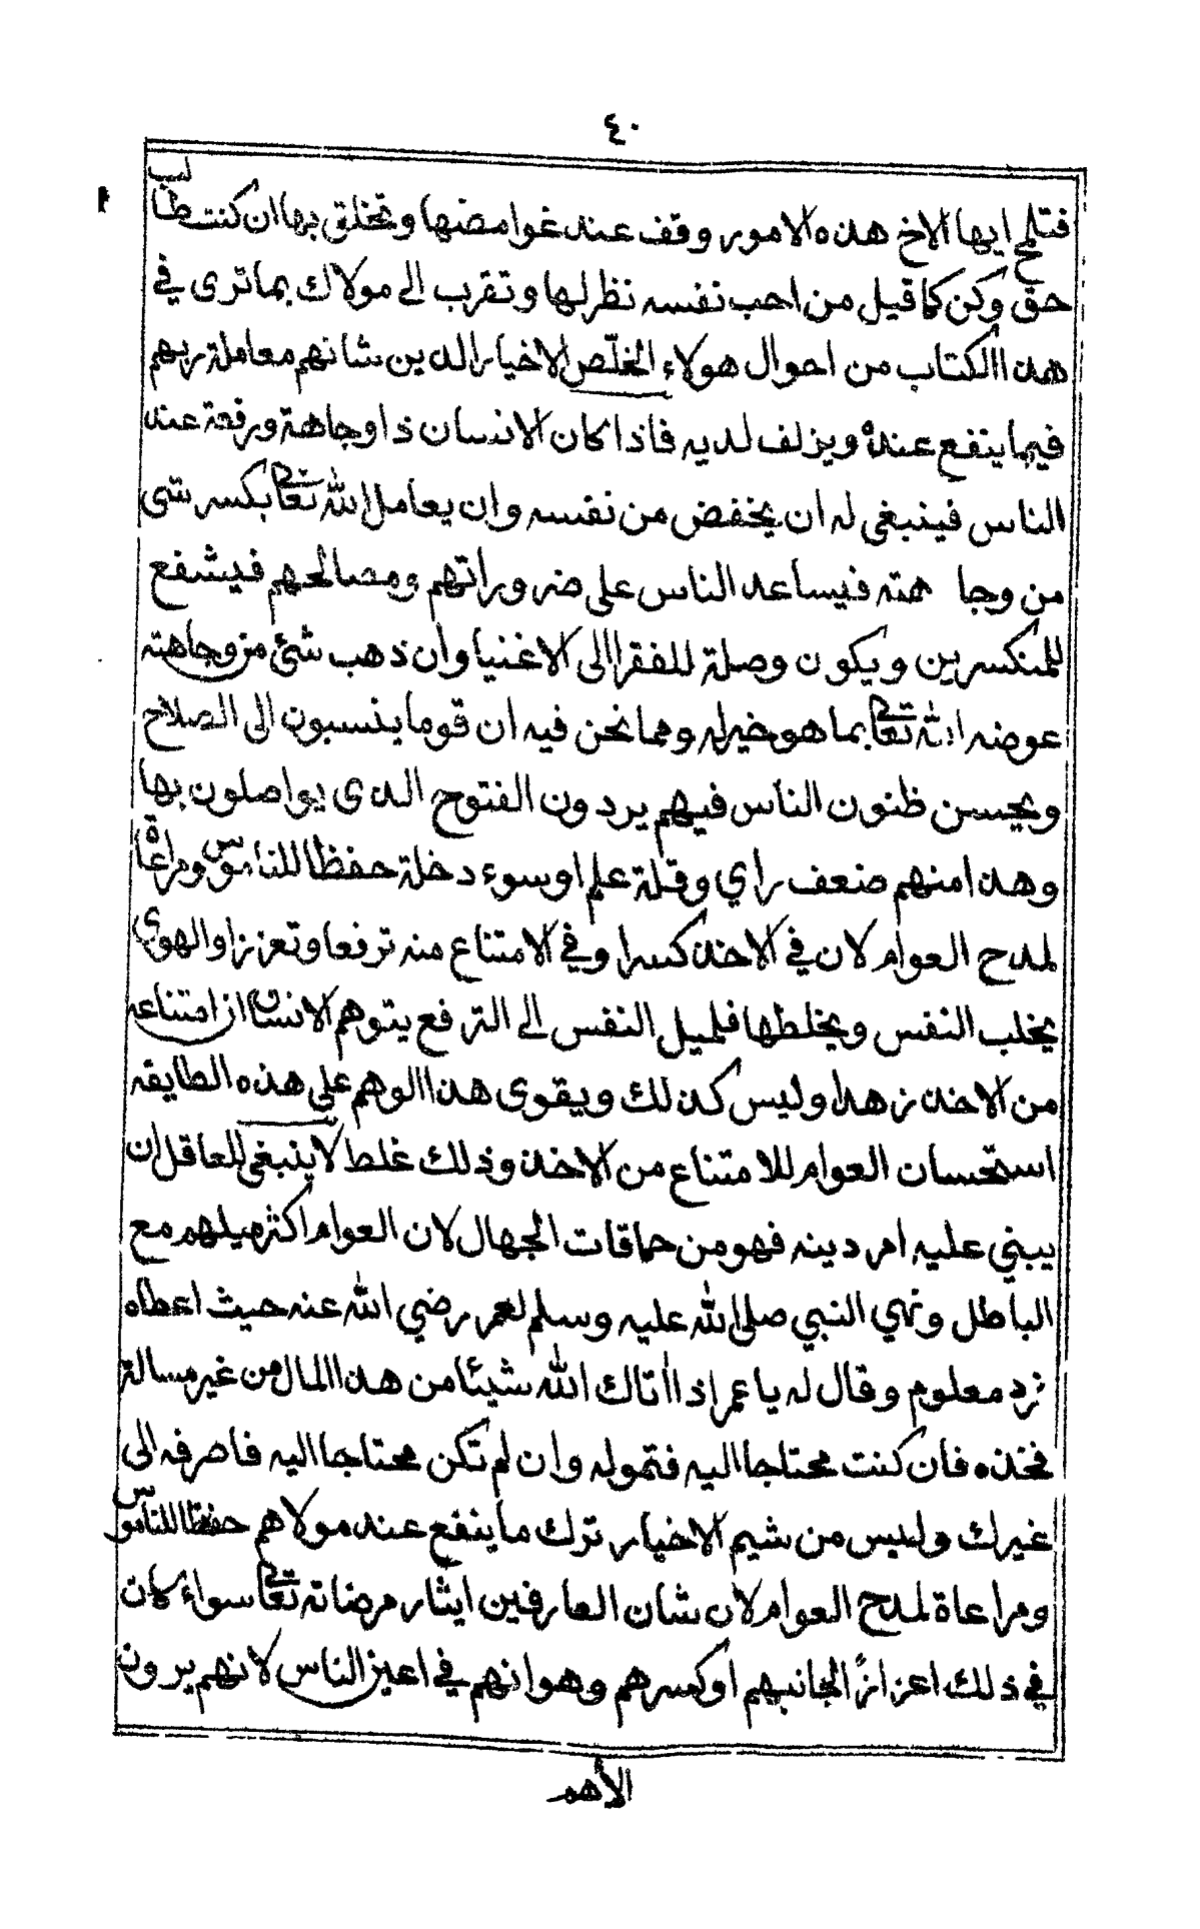 ٤٠
فتلمح ايها الاخ هذه الامور وقف عند غوامضها وتخلق بها ان كنت طالب
حق وكن كما قيل من احب نفسه نظر لها وتقرب الى مولاك بما ترى في
هذا الكتاب من احوال هولاء الخلّص الاخيار الذين شانهم معاملة ربهم
فيما ينفع عنده ويزلف لديه فاذا كان الانسان ذا وجاهة ورفعة عند
الناس فينبغي له ان يخفض من نفسه وان يعامل الله تعالى بكسر شى
من وجا هته فيساعد الناس على ضروراتهم ومصالحهم فيشفع
للمنكسرين ويكون وصلة للفقرا الى الاغنيا وان ذهب شئ من وجاهته
عوضه الله تعالى بما هو خير له ومما نحن فيه ان قوما ينسبون الى الصلاح
ويحسن ظنون الناس فيهم يردون الفتوح الذى يواصلون بها
وهذا منهم ضعف راي وقلة علم او سوء دخلة حفظا للناموس ومراعاة
لمدح العوام لان في الاخذ كسرا وفي الامتناع منه ترفعا وتعززا والهوي
يخلب النفس ويخلطها فلميل النفس الى الترفع يتوهم الانسان ان امتناعه
من الاخذ زهدا وليس كذلك ويقوى هذا الوهم على هذه الطايفه
استحسان العوام للامتناع من الاخذ وذلك غلط لا ينبغي للعاقل ان
يبني عليه امر دينه فهو من حماقات الجهال لان العوام اكثر ميلهم مع
الباطل ونهي النبي صلى الله عليه وسلم لعمر رضي الله عنه حيث اعطاه
نرد معلوم وقال له يا عمر اذا أتاك الله شيئا من هذا المال من غير مسالة
فخذه فان كنت محتاجا اليه فتموله وان لم تكن محتاجا اليه فاصرفه الى
غيرك وليس من شيم الاخيار ترك ما ينفع عند مولاهم حفظا للناموس
ومراعاة لمدح العوام لان شان العارفين ايثار مرضاته تعالى سواء كان
في ذلك اعزازً الجانبهم او كسرهم وهوانهم في اعين الناس لانهم يرون
الأهم